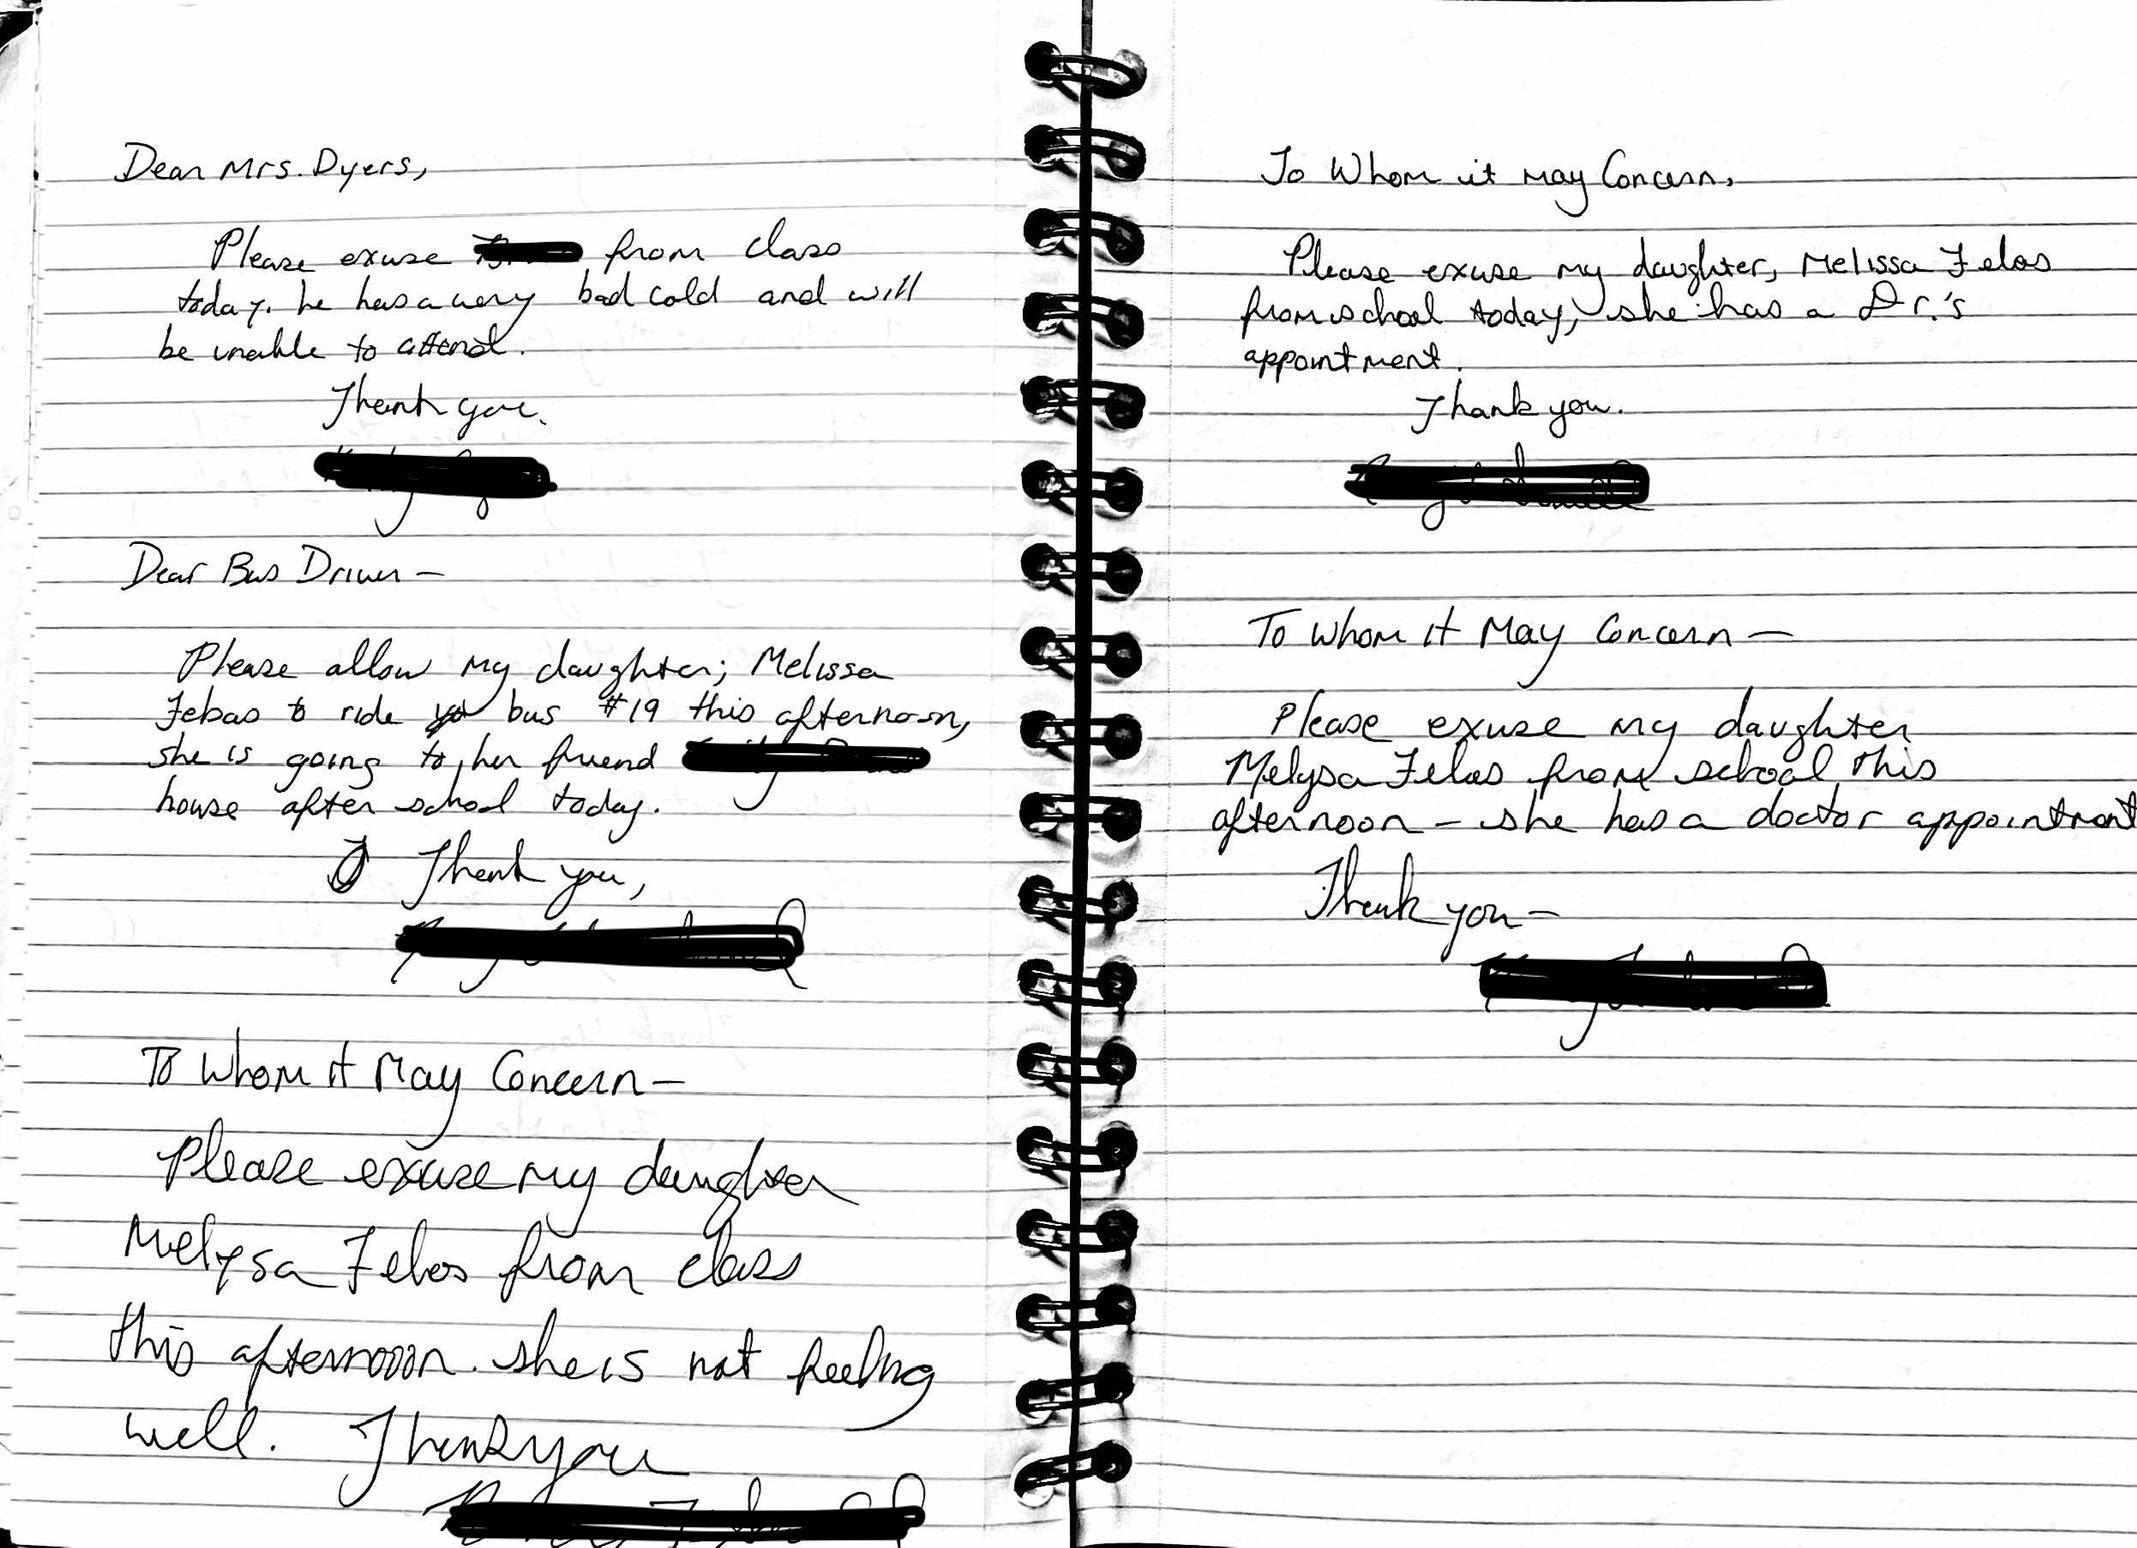 Dear Mrs. Dyers,
Please excuse from class
today. he has a very bad cold and will
be unable to attend.
Thank you.
Dear Bus Driver -
Please allow my daughter; Melissa
Febas to ride bus #19 this afternoon,
she is going to her friend
house after school today.
Thank you,
To Whom it May Concern -
Please excuse my daughter
Melysa Febos from class
this afternoon. she is not feeling
well. Thank you
To Whom it May Concern,
Please excuse my daughter, Melissa Febos
from school today, she has a Dr.'s
appointment.
Thank you.
To Whom it May Concern -
Please excuse my daughter
Melysa Febos from school this
afternoon - she has a doctor appointment
Thank you -